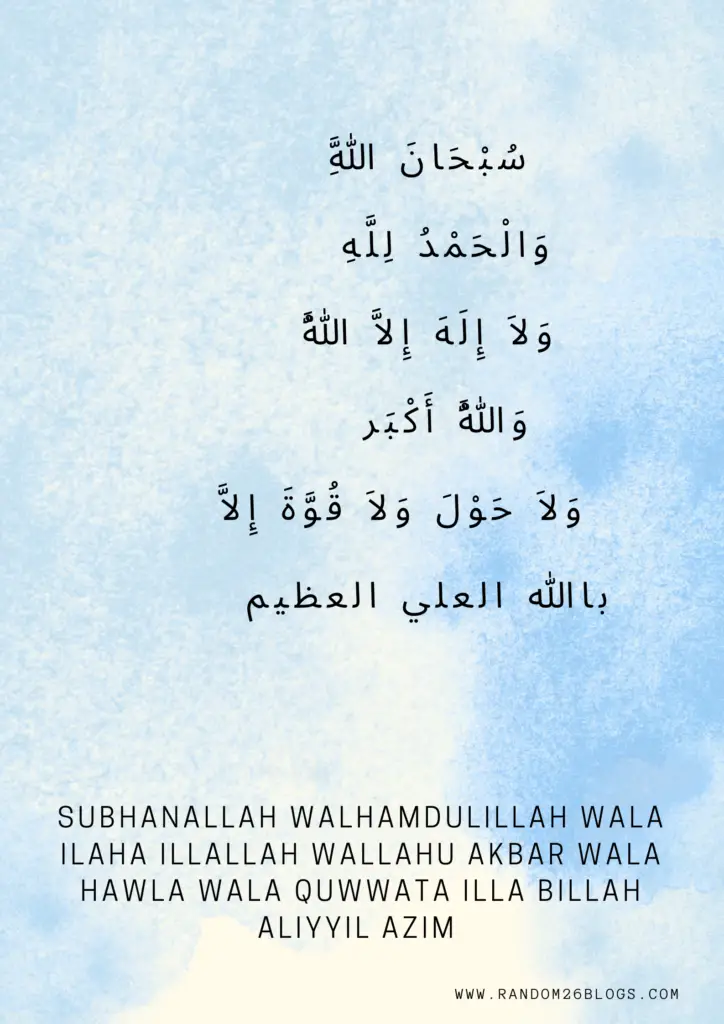 سُبْحَانَ اللهَِّ
وَالْحَمْدُ لِلَّهِ
وَلاَ إِلَهَ إِلاَّ اللهَُّ
وَاللهَُّ أَكْبَر
وَلاَ حَوْلَ وَلاَ قُوَّةَ إِلاَّ
باالله العلي العظيم
SUBHANALLAH WALHAMDULILLAH WALA
ILAHA ILLALLAH WALLAHU AKBAR WALA
HAWLA WALA QUWWATA ILLA BILLAH
ALIYYIL AZIM
WWW.RANDOM26BLOGS.COM